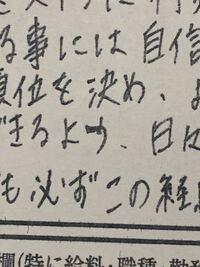 る事には自信
順位を決め、
できるよう、日々
も必ずこの経
欄(特に給料・職種・勤務